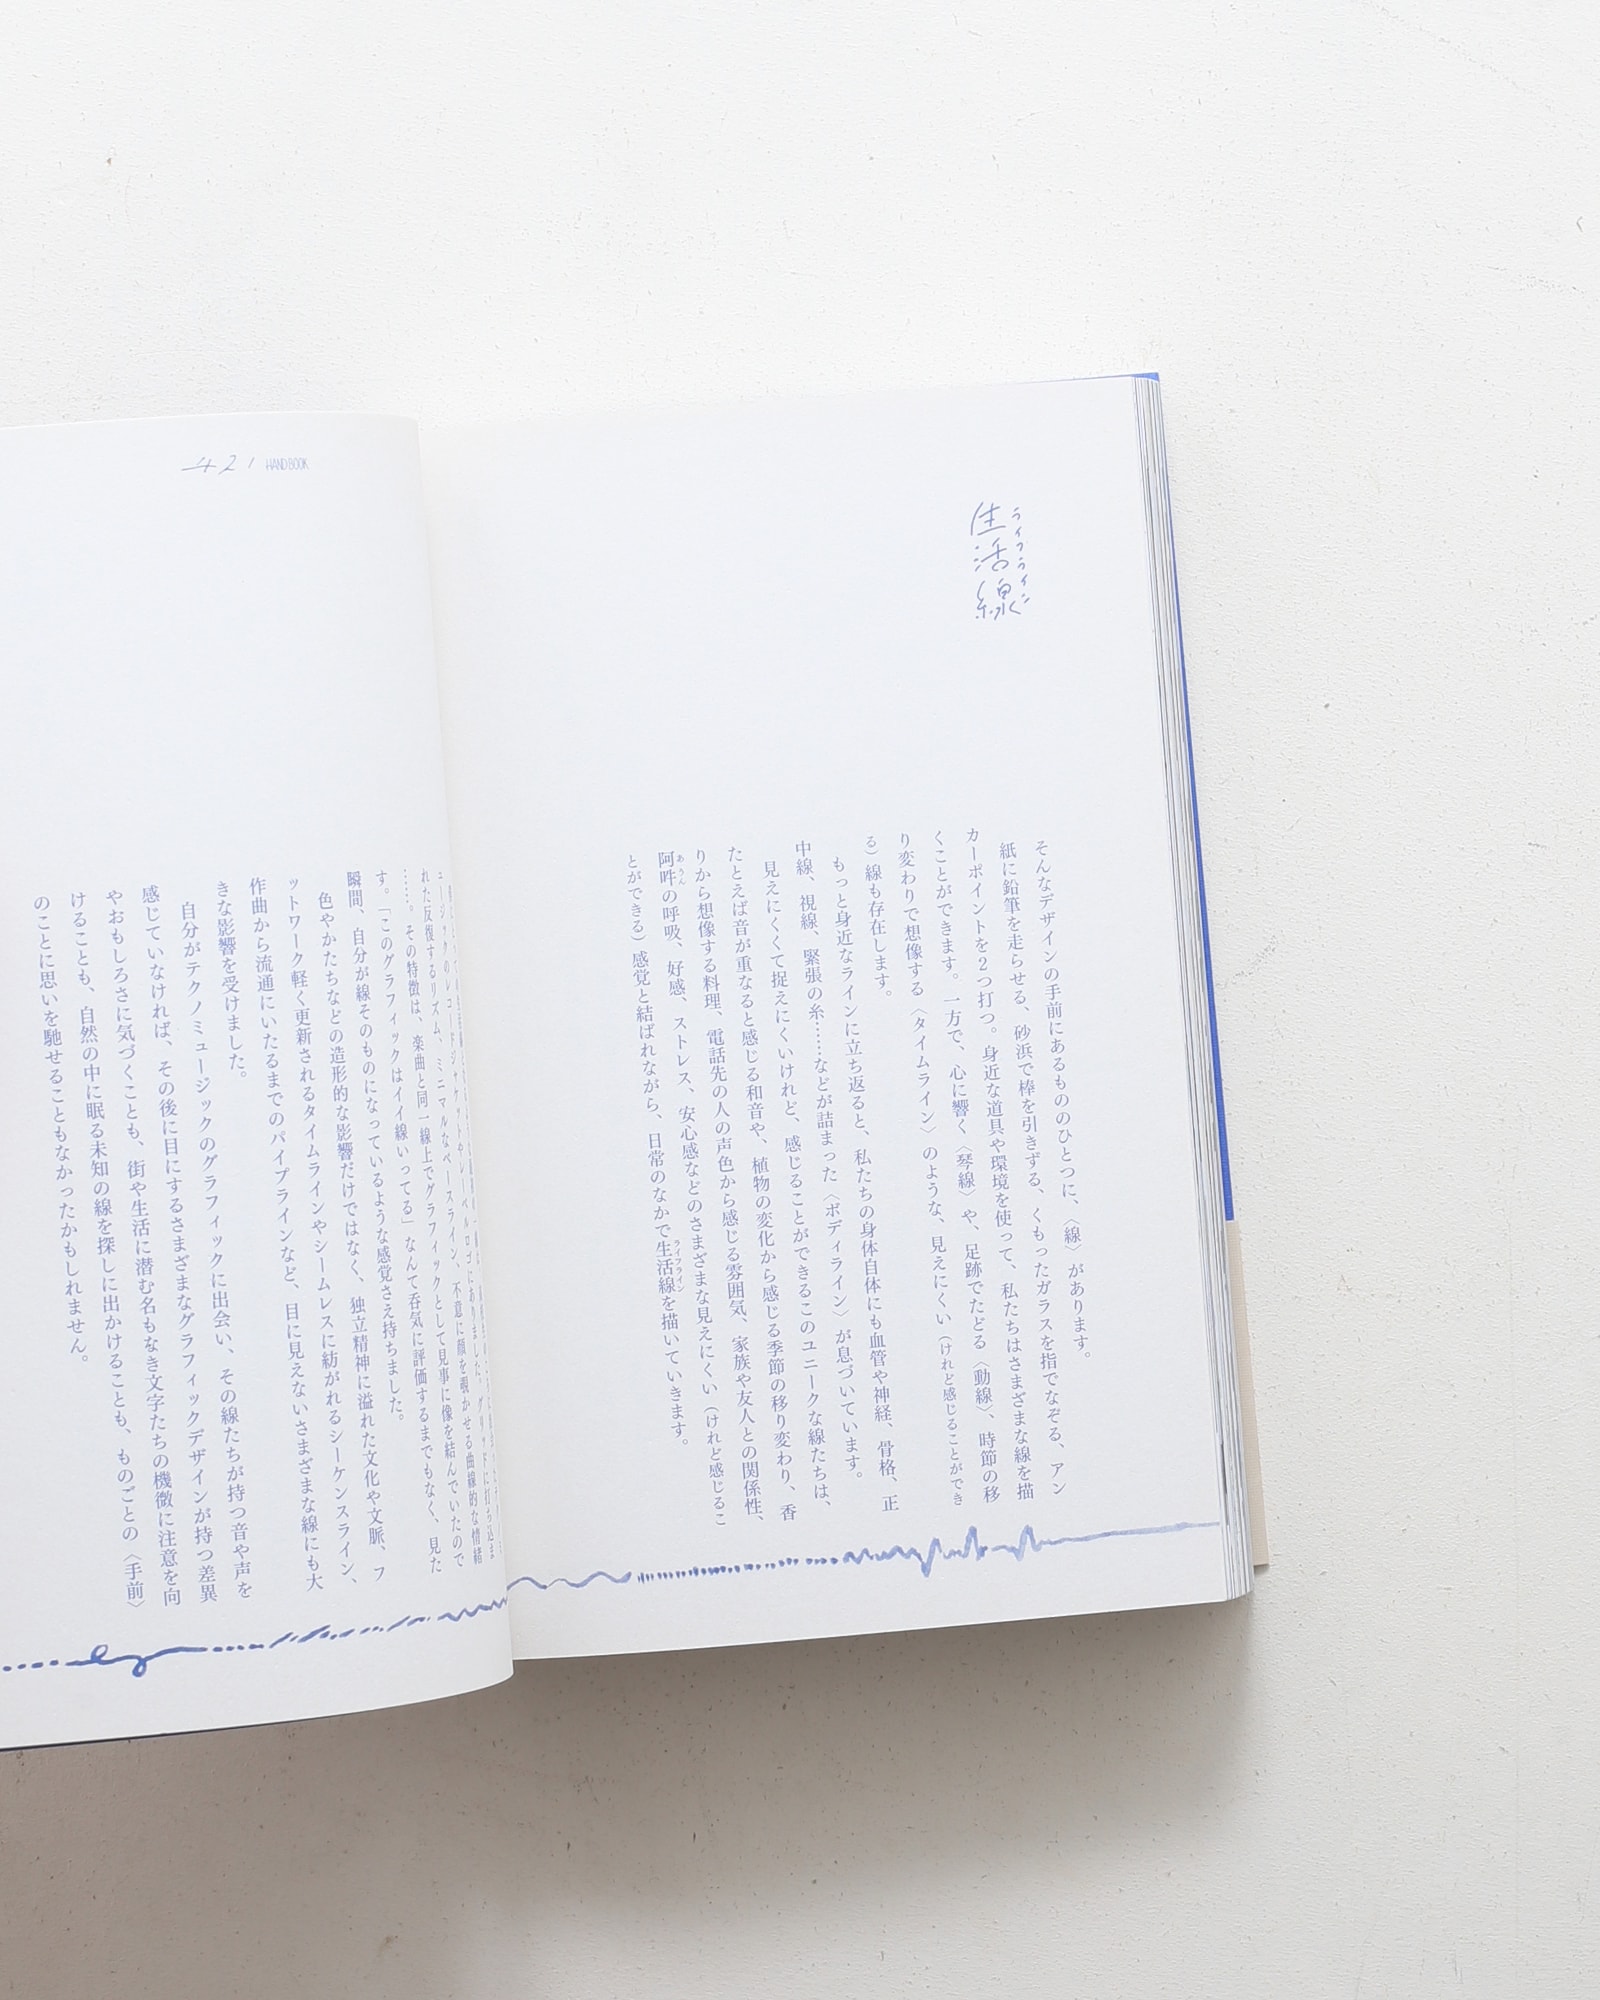 生活線
ライフライン
そんなデザインの手前にあるもののひとつに、〈線〉があります。
紙に鉛筆を走らせる、砂浜で棒を引きずる、くもったガラスを指でなぞる、アン
カーポイントを2つ打つ。身近な道具や環境を使って、私たちはさまざまな線を描
くことができます。一方で、心に響く〈琴線〉や、足跡でたどる〈動線〉、時節の移
り変わりで想像する〈タイムライン〉のような、見えにくい（けれど感じることができ
る）線も存在します。
もっと身近なラインに立ち返ると、私たちの身体自体にも血管や神経、骨格、正
中線、視線、緊張の糸……などが詰まった〈ボディライン〉が息づいています。
見えにくくて捉えにくいけれど、感じることができるこのユニークな線たちは、
たとえば音が重なると感じる和音や、植物の変化から感じる季節の移り変わり、香
りから想像する料理、電話先の人の声色から感じる雰囲気、家族や友人との関係性、
阿吽の呼吸、好感、ストレス、安心感などのさまざまな見えにくい（けれど感じるこ
あうん
とができる）感覚と結ばれながら、日常のなかで生活線を描いていきます。
ライフライン
ュージックのレコードジャケットやレーベルロゴにありました。グリッドに打ち込ま
れた反復するリズム、ミニマルなベースライン、不意に顔を覗かせる曲線的な情緒
……。その特徴は、楽曲と同一線上でグラフィックとして見事に像を結んでいたので
す。「このグラフィックはイイ線いってる」なんて呑気に評価するまでもなく、見た
瞬間、自分が線そのものになっているような感覚さえ持ちました。
色やかたちなどの造形的な影響だけではなく、独立精神に溢れた文化や文脈、フ
ットワーク軽く更新されるタイムラインやシームレスに紡がれるシーケンスライン、
作曲から流通にいたるまでのパイプラインなど、目に見えないさまざまな線にも大
きな影響を受けました。
自分がテクノミュージックのグラフィックに出会い、その線たちが持つ音や声を
感じていなければ、その後に目にするさまざまなグラフィックデザインが持つ差異
やおもしろさに気づくことも、街や生活に潜む名もなき文字たちの機微に注意を向
けることも、自然の中に眠る未知の線を探しに出かけることも、ものごとの〈手前〉
のことに思いを馳せることもなかったかもしれません。
421 HAND BOOK